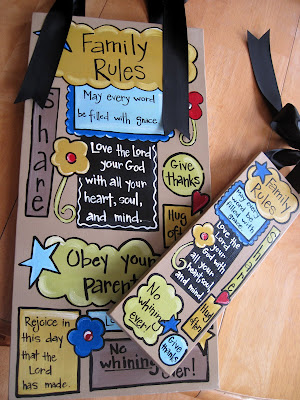 Family
Rules
May every word
be filled with grace.
share
Love the Lord
your God
with all your
heart, soul,
and mind.
Give
thanks
Hug
often
Obey your
Parents
Rejoice in
this day
that the
Lord
has made.
No
whining
ever!
Family
Rules
May every
word be
filled with
grace.
Love the
Lord
your
God with
all your
heart, soul,
and mind.
share
Hug
often
No
whining
ever!
Give
thanks